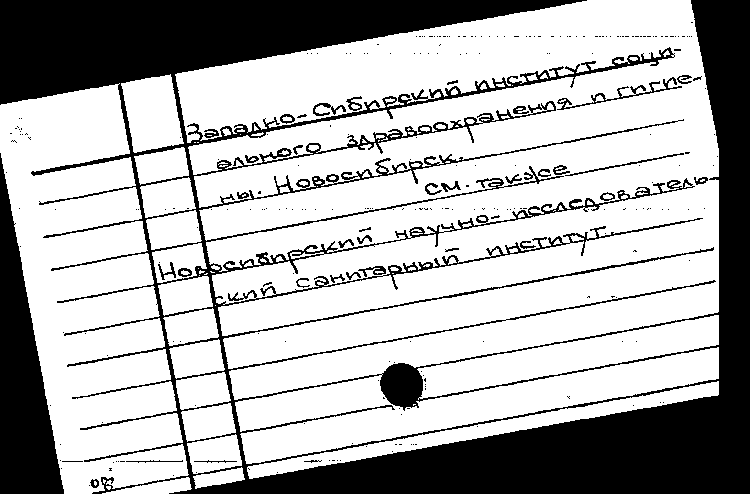 Западно-Сибирский институт соци-
ального здравоохранения и гигие-
ны. Новосибирск.
см. также
Новосибирский научно-исследователь-
ский санитарный институт.